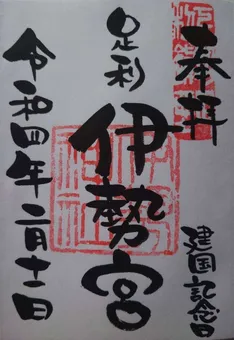 奉拝
建国記念日
足利
伊勢宮
令和四年二月十一日